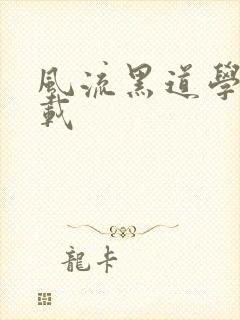 風流黑道學
載
龍卡